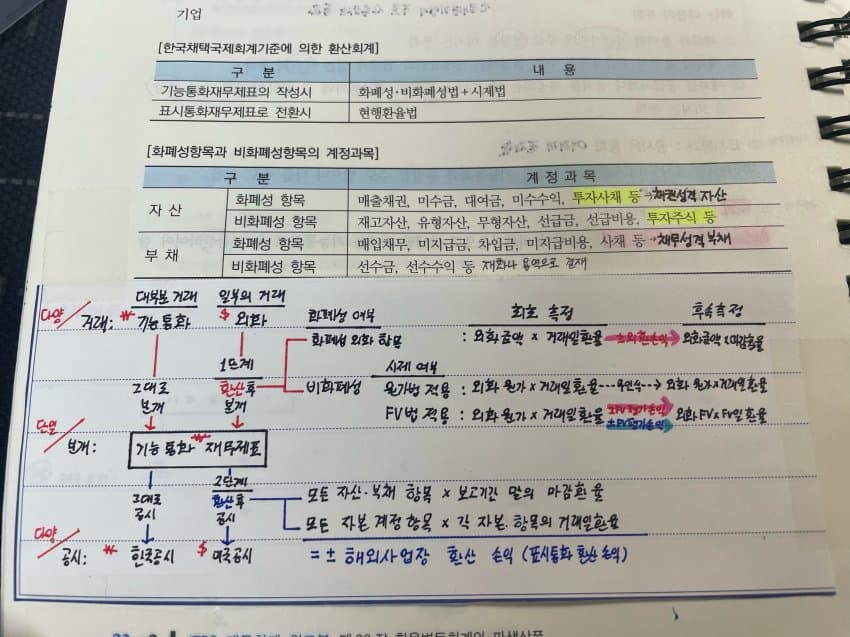 기업
[한국채택국제회계기준에 의한 환산회계]
구 분 내 용
기능통화재무제표의 작성시 화폐성·비화폐성법+시제법
표시통화재무제표로 전환시 현행환율법
[화폐성항목과 비화폐성항목의 계정과목]
구 분 계 정 과 목
자 산 화폐성 항목 매출채권, 미수금, 대여금, 미수수익, 투자사채 등 → 채권성격 자산
비화폐성 항목 재고자산, 유형자산, 무형자산, 선급금, 선급비용, 투자주식 등
부 채 화폐성 항목 매입채무, 미지급금, 차입금, 미지급비용, 사채 등 → 채무성격 부채
비화폐성 항목 선수금, 선수수익 등 재화나 용역으로 결제
대부분 거래 일부의 거래 화폐성 여부 최초 측정 후속측정
다양/ 거래: ₩ 기능통화 $ 외화
화폐성 외화 항목 : 외화금액 × 거래일환율 ±외환손익 외화금액×마감환율
1단계 시제 여부
그대로 환산후 비화폐성 원가법 적용 : 외화 원가×거래일환율 → 외화 원가×거래일환율
보개 보개 FV법 적용 : 외화 원가×거래일환율 ±FV평가손익 외화FV×FV일환율
±FV평가손익
단일/ 보개: 기능통화 ₩ 재무제표
2단계
그대로 환산후 모든 자산·부채 항목 × 보고기간 말의 마감환율
공시 공시 모든 자본 계정항목 × 각 자본 항목의 거래일환율
다양/ 공시: ₩ 한국공시 $ 미국공시 = ± 해외사업장 환산 손익 (표시통화 환산 손익)